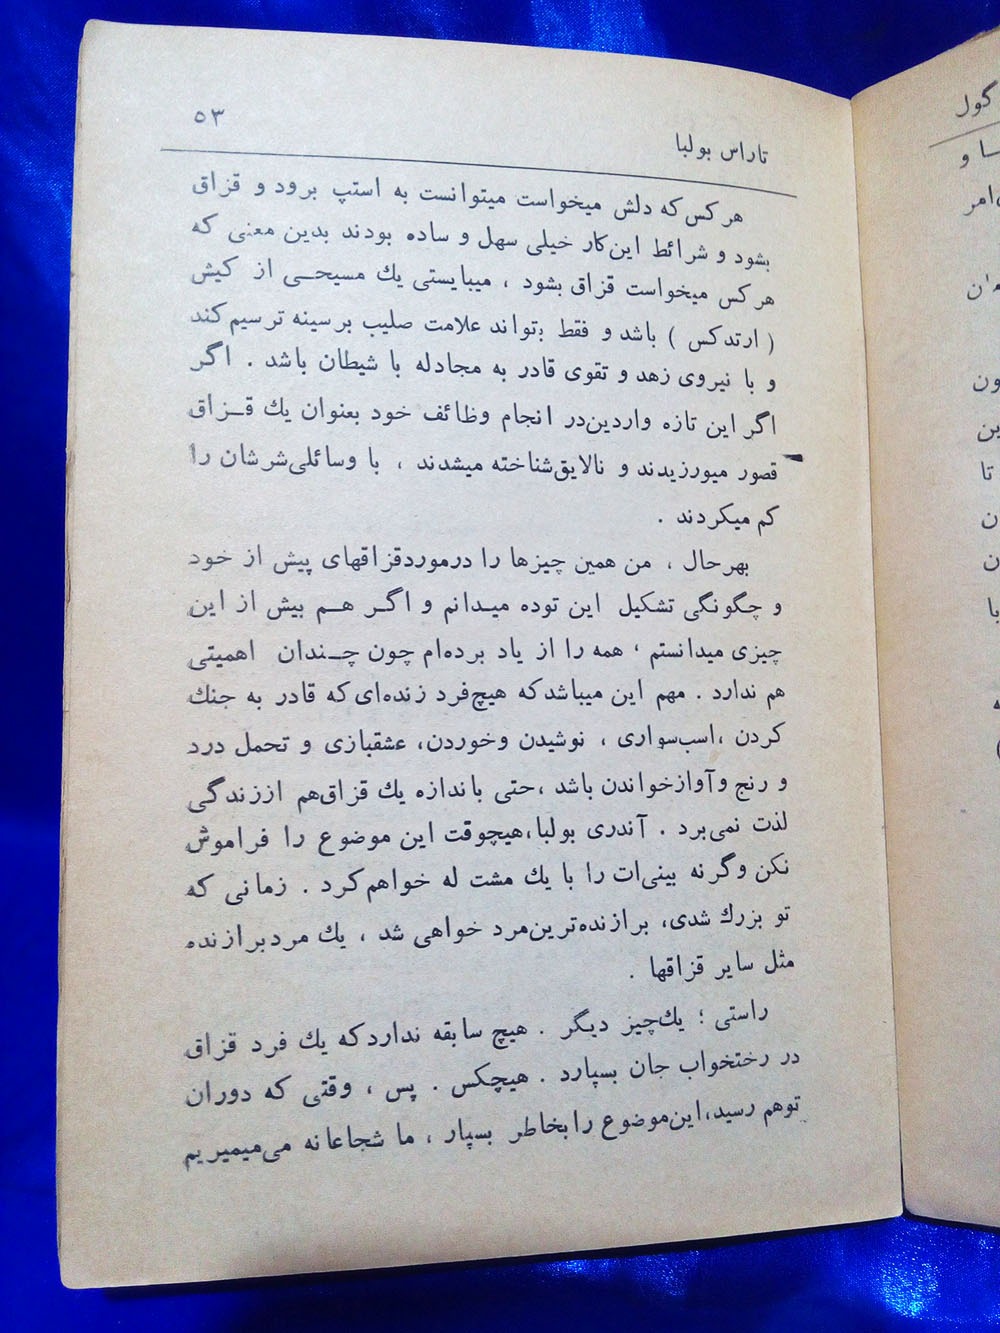 تاراس بولبا ۵۳
هرکس که دلش میخواست میتوانست به استپ برود و قزاق
بشود و شرائط این‌کار خیلی سهل و ساده بودند بدین معنی که
هرکس میخواست قزاق بشود ، میبایستی یك مسیحی از کیش
( ارتدکس ) باشد و فقط بتواند علامت صلیب برسینه ترسیم کند
و با نیروی زهد و تقوی قادر به مجادله با شیطان باشد . اگر
اگر این تازه واردین‌در انجام وظائف خود بعنوان یك قزاق
قصور میورزیدند و نالایق‌شناخته میشدند ، با وسائلی‌شرشان را
کم میکردند .
بهرحال ، من همین چیزها را درموردقزاقهای پیش از خود
و چگونگی تشکیل این توده میدانم و اگر هم بیش از این
چیزی میدانستم ، همه را از یاد برده‌ام چون چندان اهمیتی
هم ندارد . مهم این میباشدکه هیچ‌فرد زنده‌ای‌که قادر به جنك
کردن ،اسب‌سواری ، نوشیدن وخوردن، عشقبازی و تحمل درد
و رنج وآوازخواندن باشد ،حتی باندازه یك قزاق‌هم اززندگی
لذت نمی‌برد . آندری بولبا،هیچوقت این موضوع را فراموش
نکن وگرنه بینی‌ات را با یك مشت له خواهم‌کرد . زمانی که
تو بزرك شدی، برازنده‌ترین‌مرد خواهی شد ، یك مردبرازنده
مثل سایر قزاقها .
راستی ؛ یك‌چیز دیگر . هیچ سابقه نداردکه یك فرد قزاق
در رختخواب جان بسپارد . هیچکس . پس ، وقتی که دوران
توهم رسید،این‌موضوع رابخاطر بسپار ، ما شجاعانه می‌میمیریم
گول
و
امر
ون
ین
تا
ن
ن
با